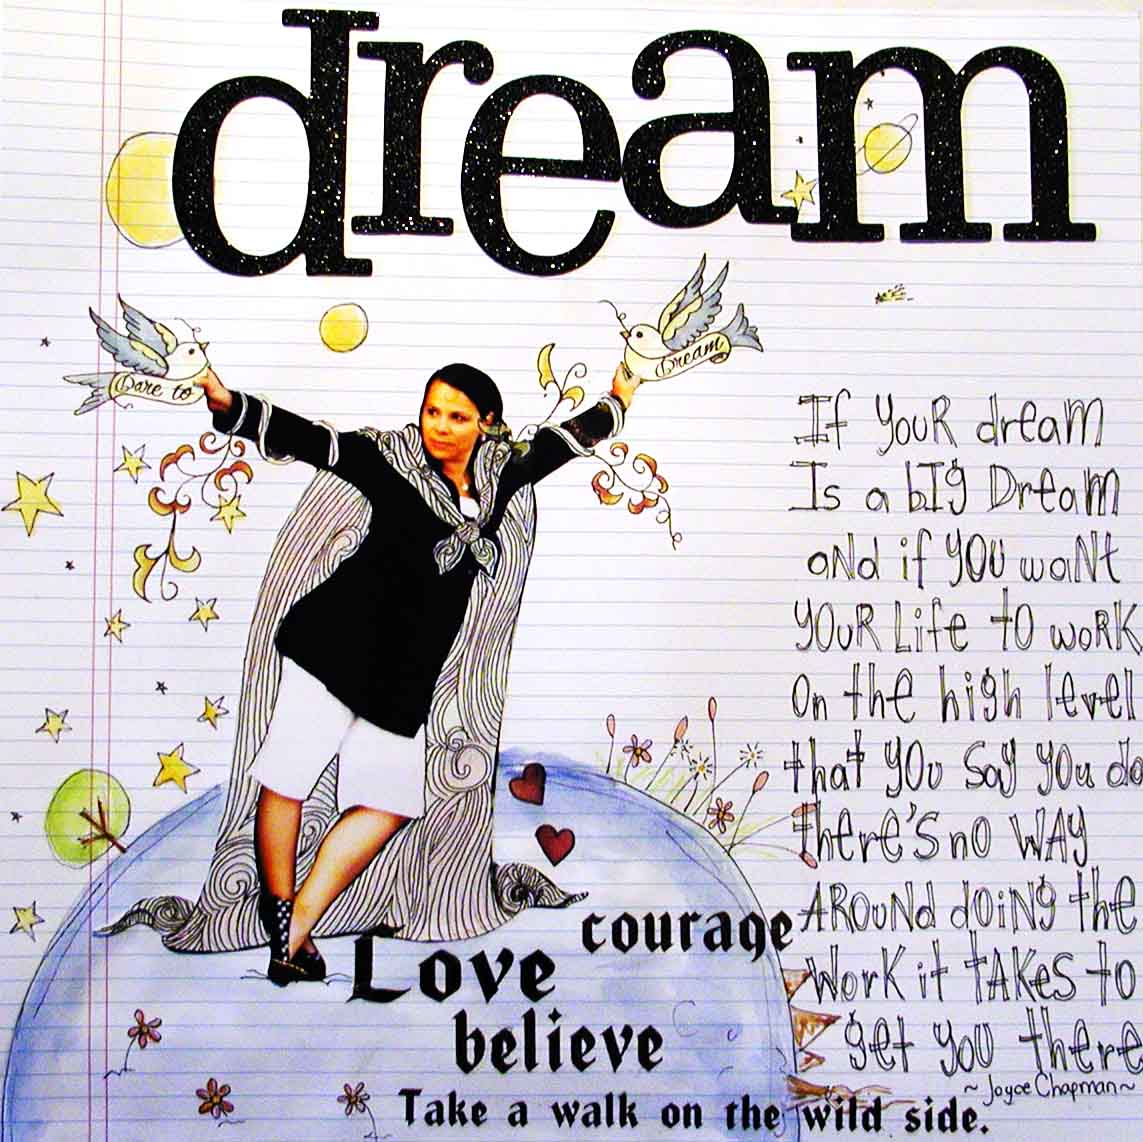 dream
Dare to
Dream
If YouR dream
Is a bIg Dream
aNd if YOU waNt
YOuR Life tO woRK
On the high level
that YOU Say YOu do
there'S no WAY
ARouNd doiNg the
Work it tAKeS to
get YOU there
~ Joyce Chapman ~
courage
Love
believe
Take a walk on the wild side.